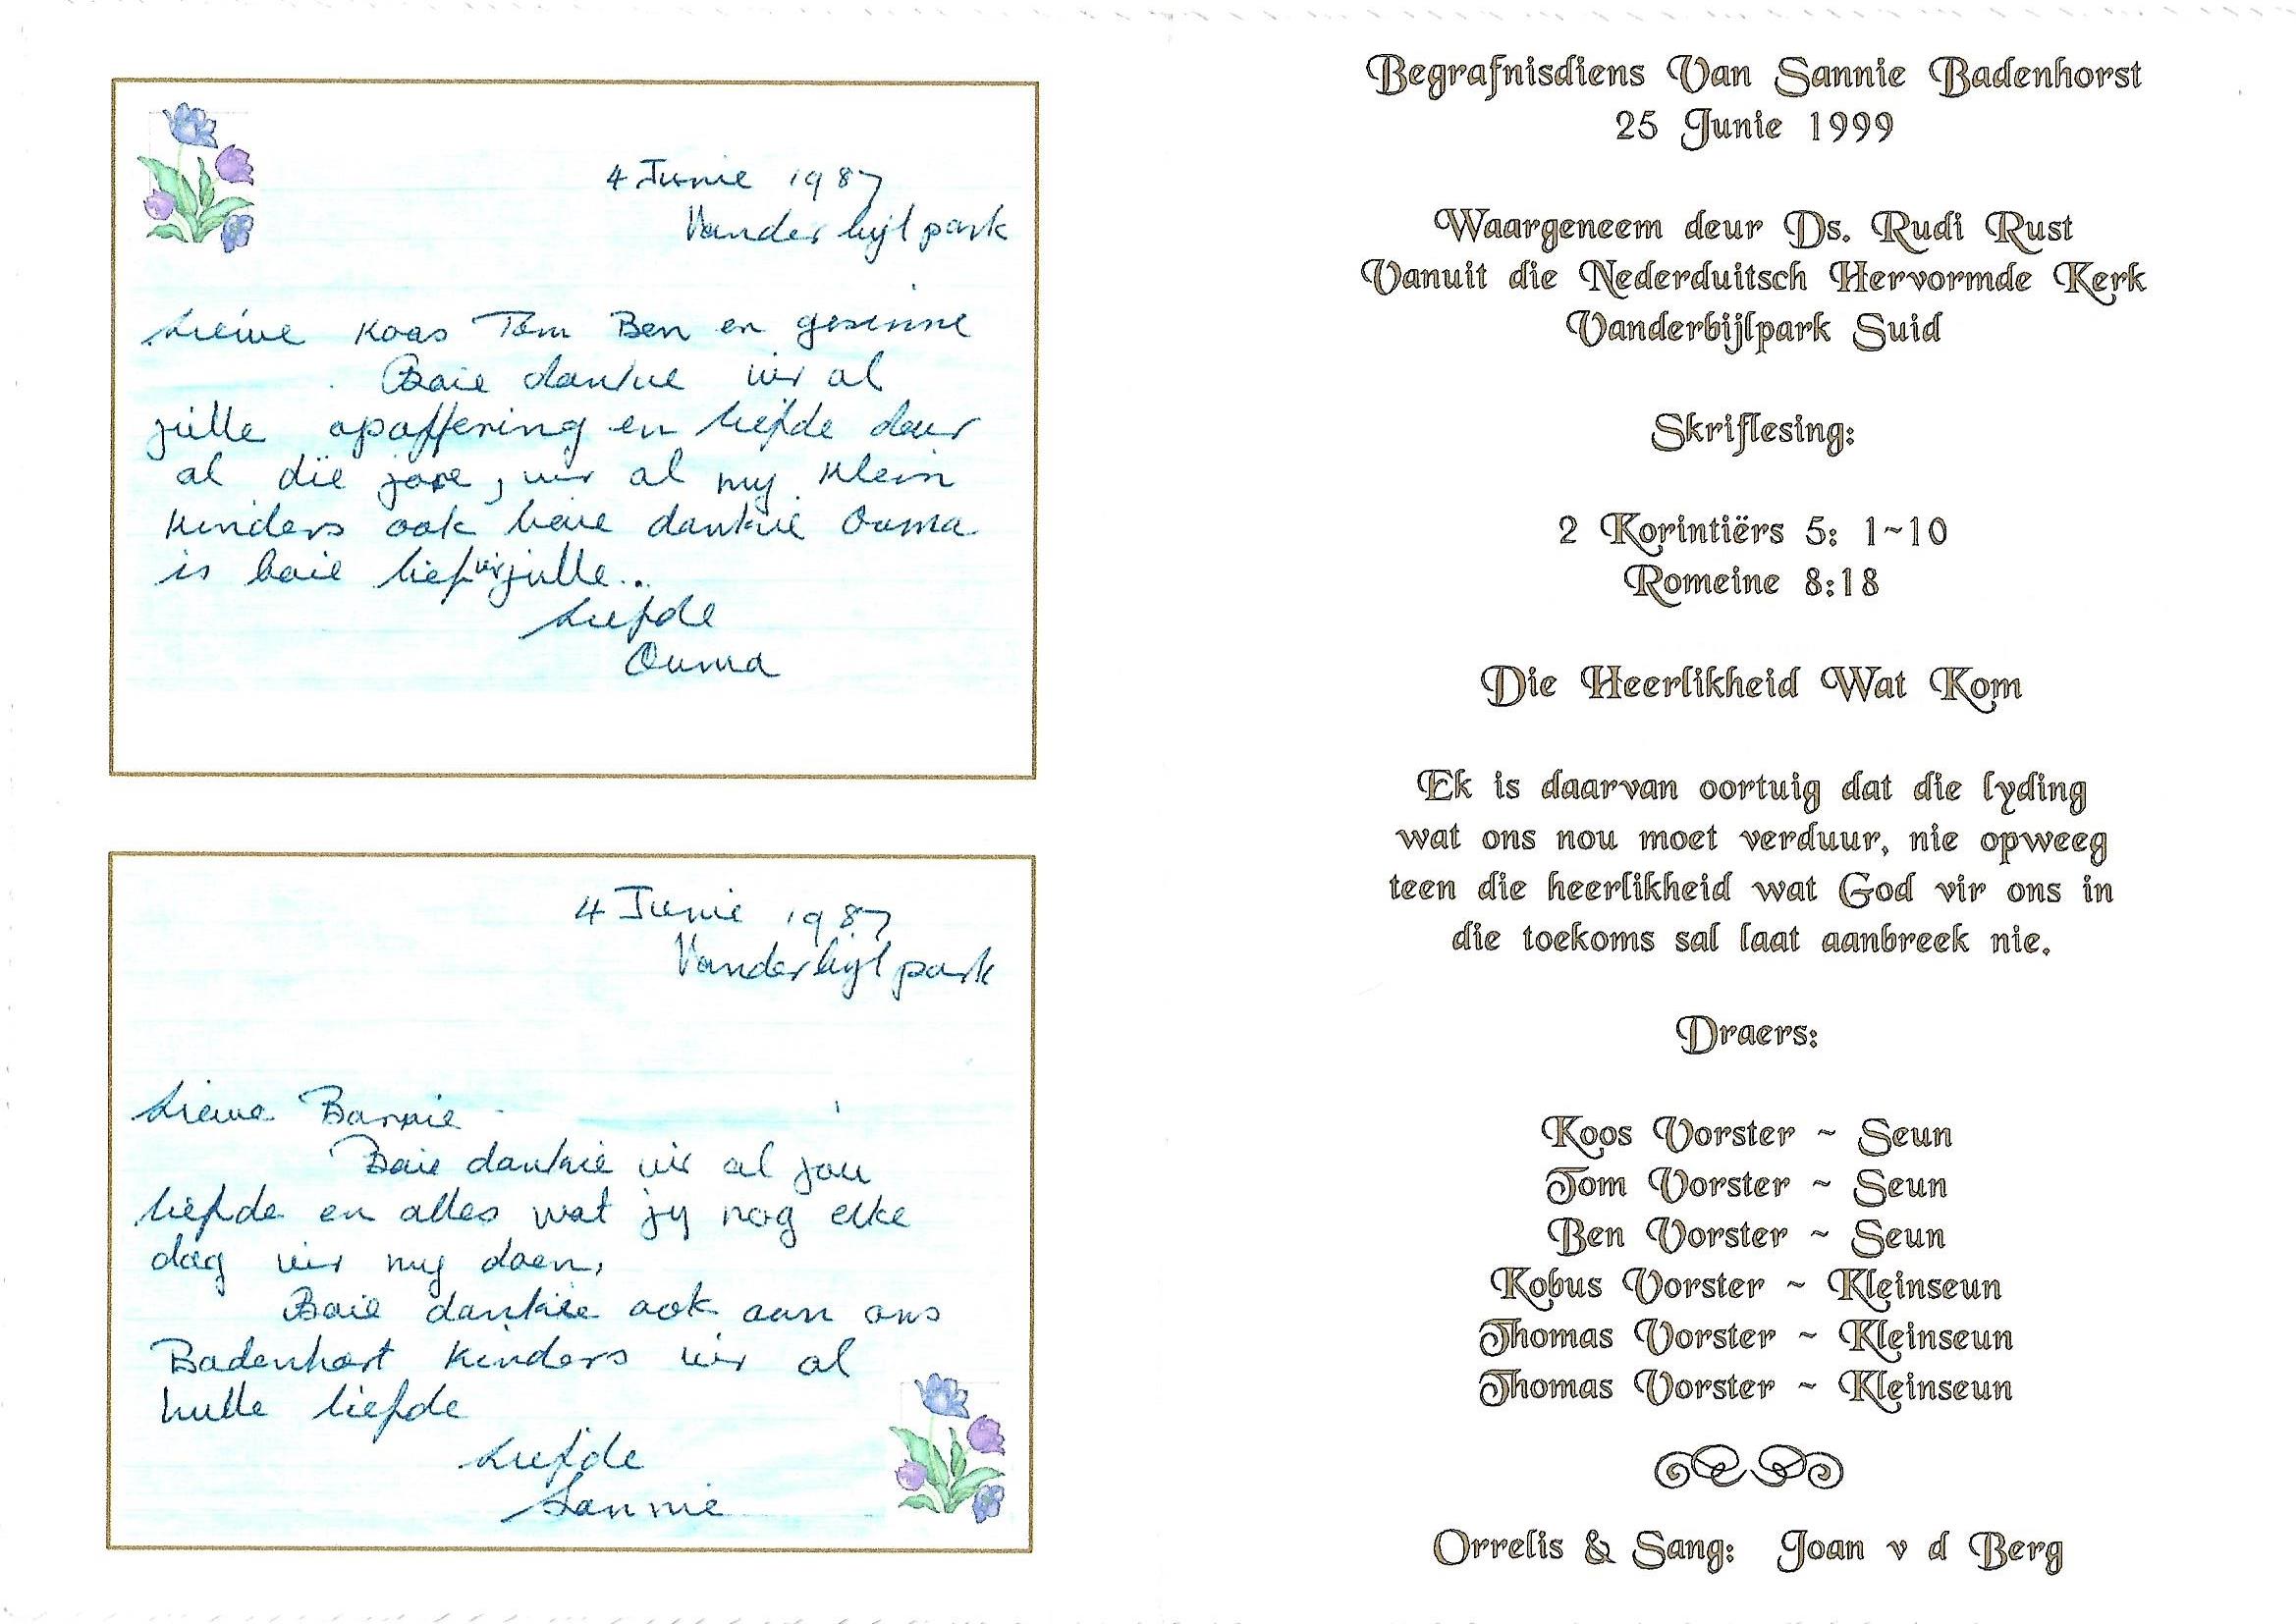 4 Junie 1987
Vanderbijlpark
Liewe Koos Tom Ben en gesinne
Baie dankie vir al
julle opoffering en liefde deur
al die jare, vir al my klein
kinders ook baie dankie Ouma
is baie lief vir julle..
Liefde
Ouma
4 Junie 1987
Vanderbijlpark
Liewe Barnie
Baie dankie vir al jou
liefde en alles wat jy nog elke
dag vir my doen.
Baie dankie ook aan ons
Badenhorst kinders vir al
hulle liefde
Liefde
Sannie
Begrafnisdiens Van Sannie Badenhorst
25 Junie 1999
Waargeneem deur Ds. Rudi Rust
Vanuit die Nederduitsch Hervormde Kerk
Vanderbijlpark Suid
Skriflesing:
2 Korintiërs 5: 1~10
Romeine 8:18
Die Heerlikheid Wat Kom
Ek is daarvan oortuig dat die lyding
wat ons nou moet verduur, nie opweeg
teen die heerlikheid wat God vir ons in
die toekoms sal laat aanbreek nie.
Draers:
Koos Vorster ~ Seun
Tom Vorster ~ Seun
Ben Vorster ~ Seun
Kobus Vorster ~ Kleinseun
Thomas Vorster ~ Kleinseun
Thomas Vorster ~ Kleinseun
Orrelis & Sang: Joan v d Berg